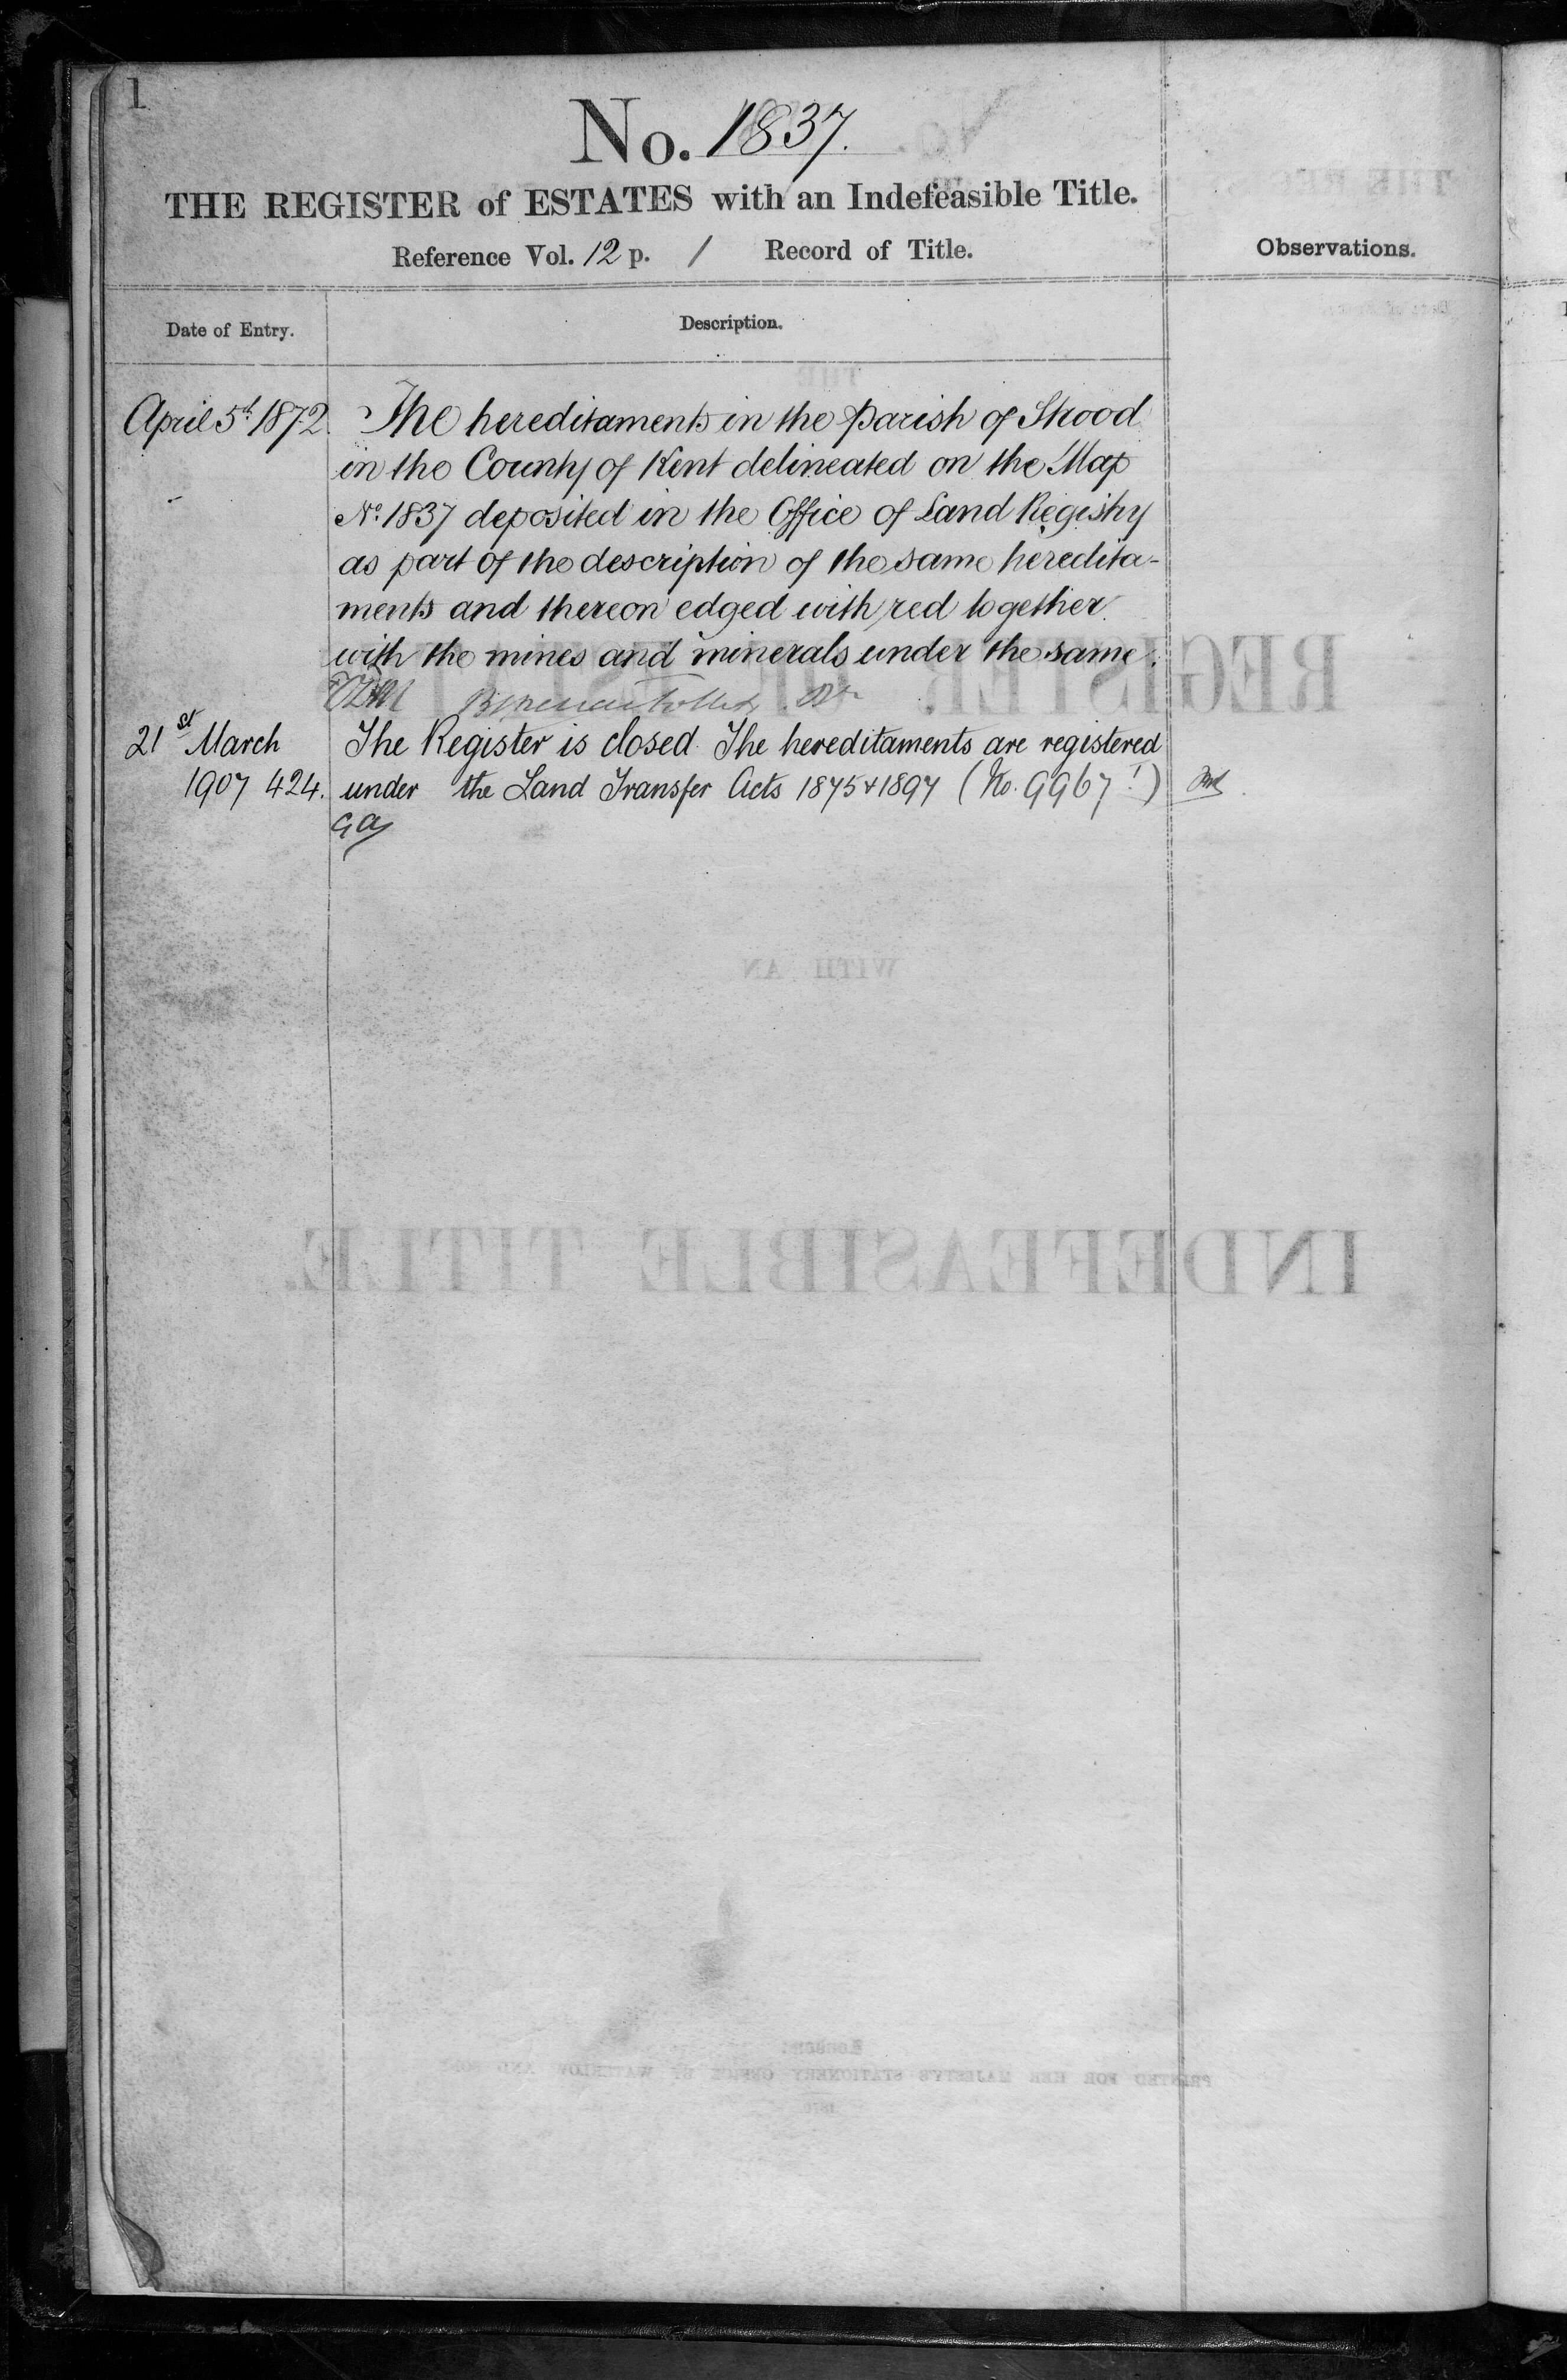 1
No. 1837.
THE REGISTER of ESTATES with an Indefeasible Title.
Reference Vol. 12 p. 1 Record of Title.
Observations.
Date of Entry.
Description.
April 5th 1872. The hereditaments in the Parish of Strood
in the County of Kent delineated on the Map
No. 1837 deposited in the Office of Land Registry
as part of the description of the same heredita-
ments and thereon edged with red together
with the mines and minerals under the same.
21st March The Register is closed. The hereditaments are registered
1907 424. under the Land Transfer Acts 1875 & 1897 (No. 9967!)
THE
REGISTER OF ESTATES
WITH AN
INDEFEASIBLE TITLE.
LONDON:
PRINTED FOR HER MAJESTY'S STATIONERY OFFICE BY WATERLOW AND SONS